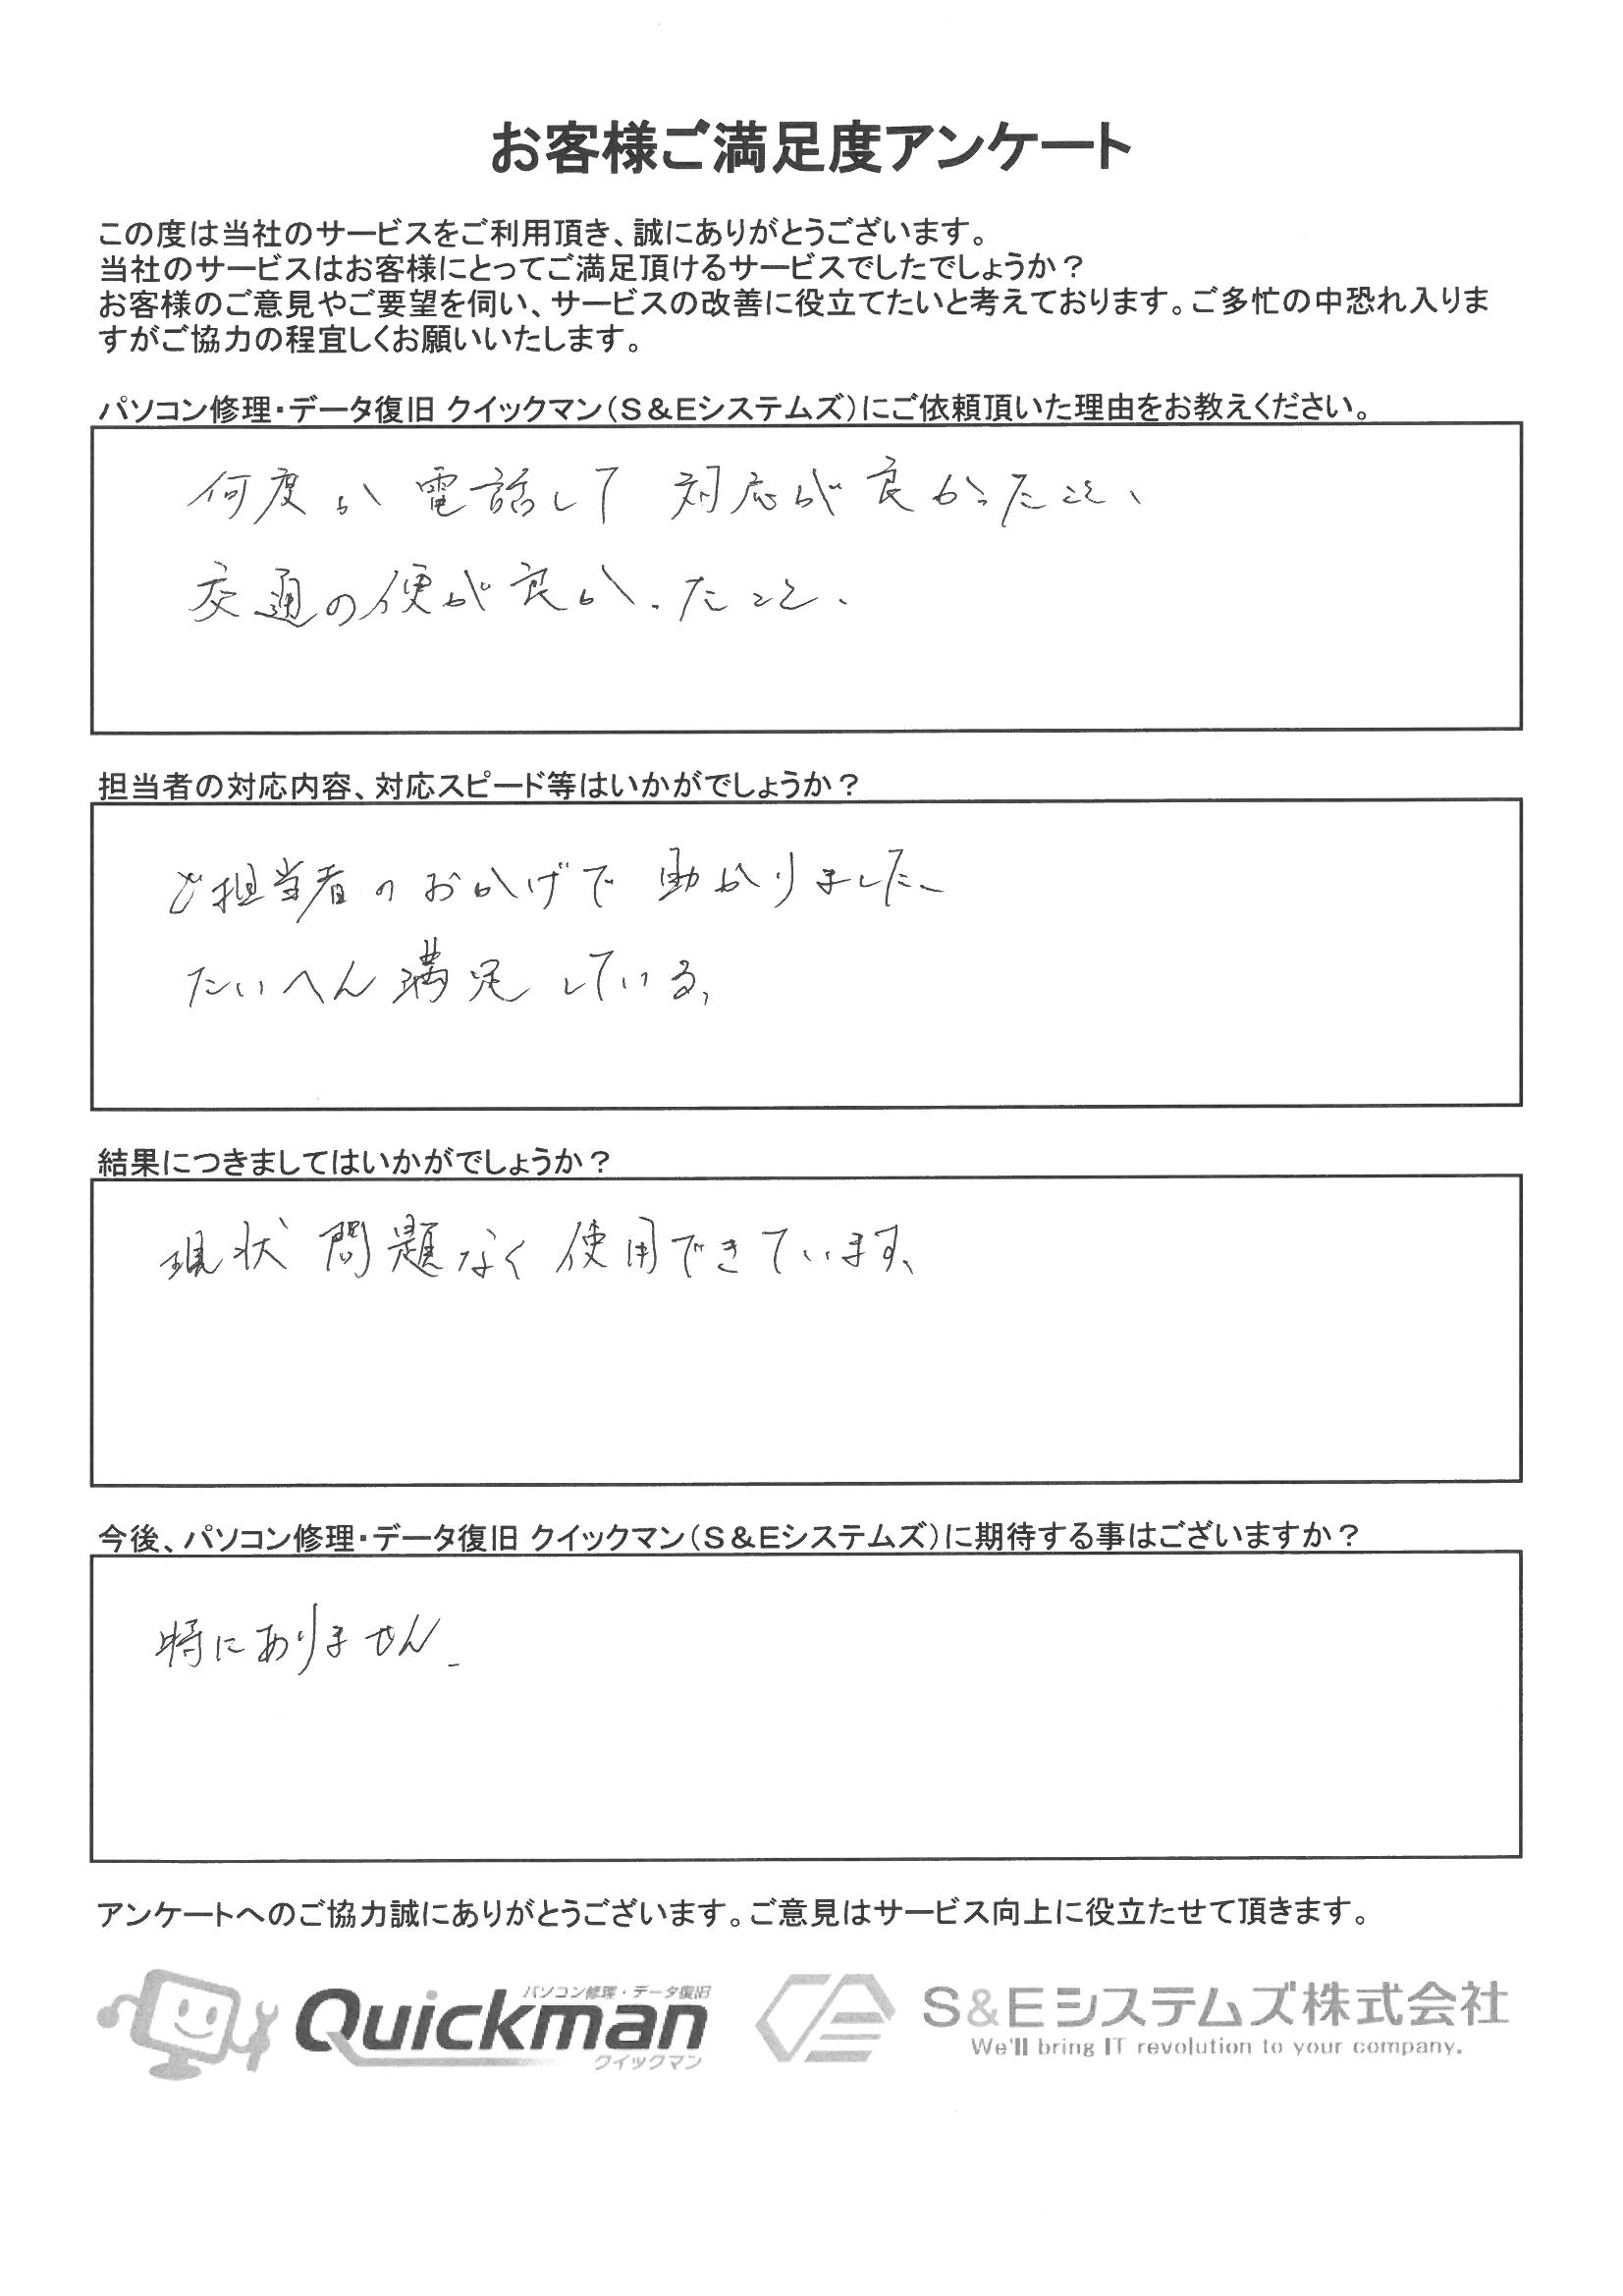 お客様ご満足度アンケート
この度は当社のサービスをご利用頂き、誠にありがとうございます。
当社のサービスはお客様にとってご満足頂けるサービスでしたでしょうか？
お客様のご意見やご要望を伺い、サービスの改善に役立てたいと考えております。ご多忙の中恐れ入りま
すがご協力の程宜しくお願いいたします。
パソコン修理・データ復旧 クイックマン（Ｓ＆Ｅシステムズ）にご依頼頂いた理由をお教えください。
何度か電話して 対応が良かったこと、
交通の便が良かったこと、
担当者の対応内容、対応スピード等はいかがでしょうか？
ご担当者のおかげで 助かりました、
たいへん満足している、
結果につきましてはいかがでしょうか？
現状 問題なく使用できています、
今後、パソコン修理・データ復旧 クイックマン（Ｓ＆Ｅシステムズ）に期待する事はございますか？
特にありません、
アンケートへのご協力誠にありがとうございます。ご意見はサービス向上に役立たせて頂きます。
パソコン修理・データ復旧
Quickman
クイックマン
S&Eシステムズ株式会社
We'll bring IT revolution to your company.